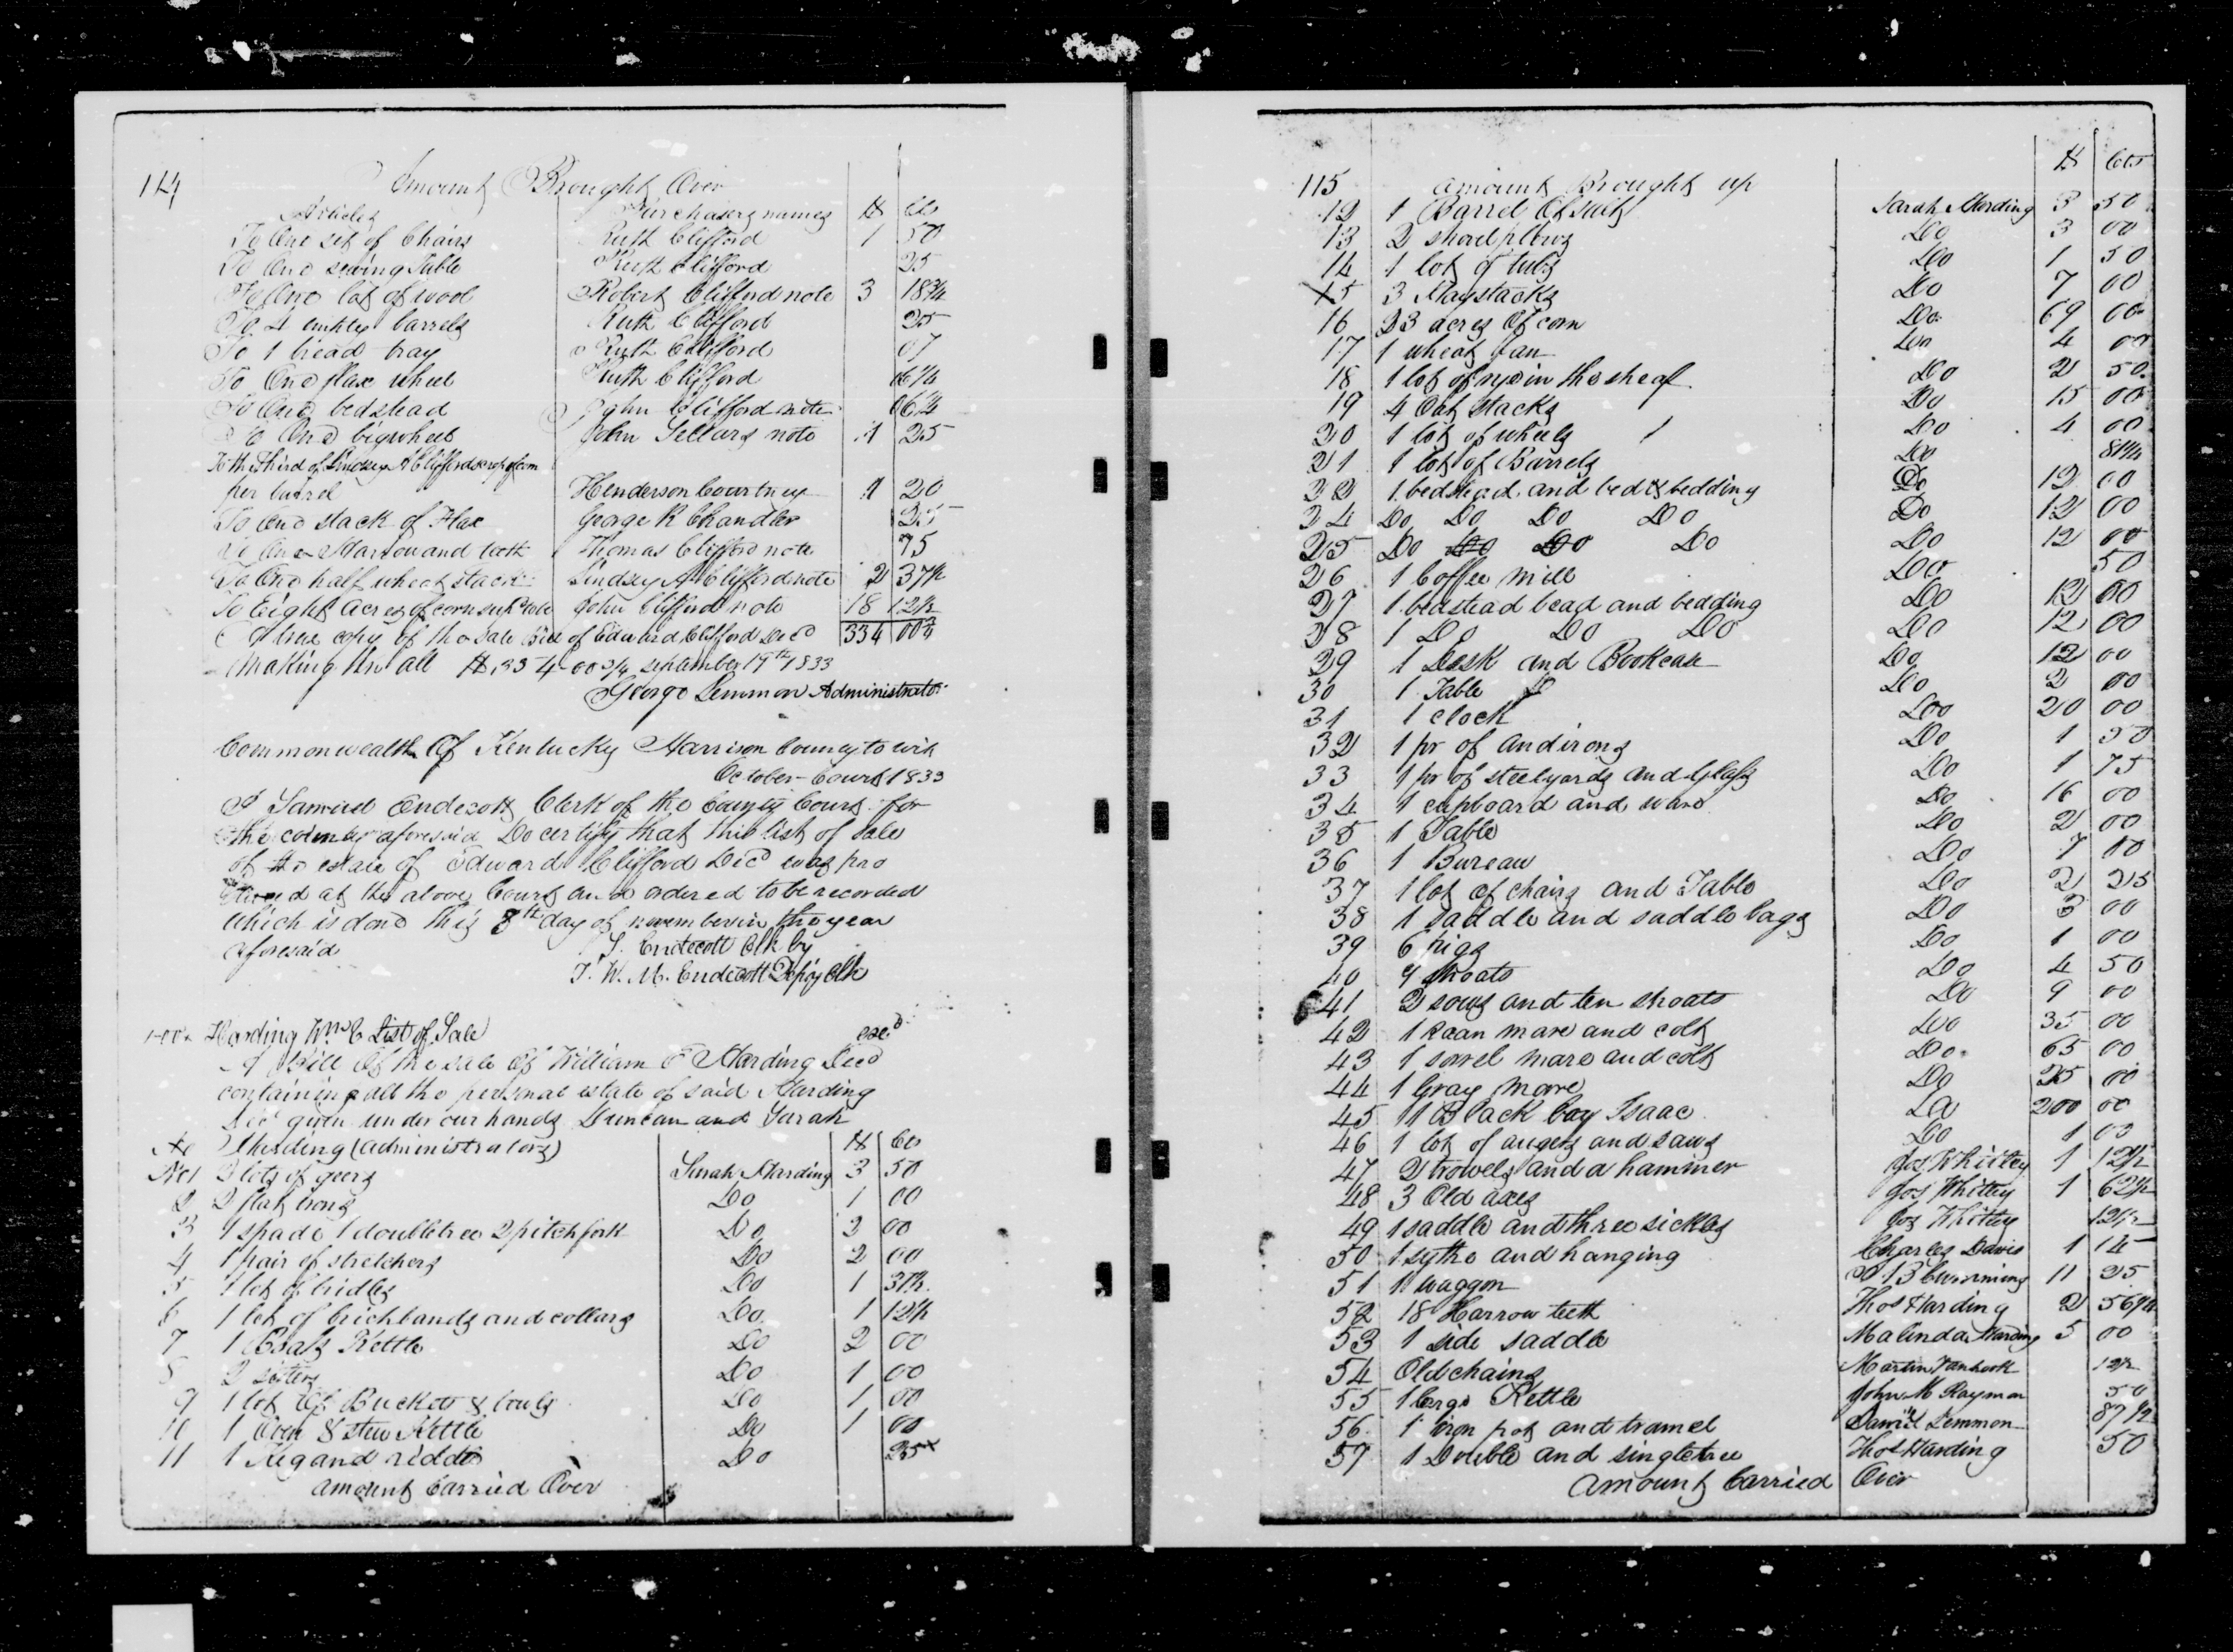 114
Amount Brought Over
Articles Purchasers names $ Cts
To One set of Chairs Ruth Clifford 1 50
To One sewing Table Ruth Clifford 25
To One lot of wool Robert Clifford note 3 18 3/4
To 4 barrels Ruth Clifford 25
To 1 bread tray Ruth Clifford 07
To One flax wheel Ruth Clifford 06 1/4
To One bedstead John Clifford note 06 1/4
To One big wheel John Sellars note 1 25
To the Third of Lindsey A Cliffords crop of corn
per barrel Henderson Courtney 1 20
To One stack of Flax George R Chandler 25
To One Harrow and teeth Thomas Clifford note 75
To One half wheat stack Lindsey A Clifford note 2 37 1/2
To Eight acres of corn John Clifford note 18 12 1/2
A true copy of the sale Bill of Edward Clifford Decd 334 00 3/4
Making in all $334-00 3/4 September 19th 1833
George Lemmon Administrator
Commonwealth Of Kentucky Harrison County to wit
October Court 1833
I Samuel Endecott Clerk of the County Court for
the county aforesaid Do certify that this list of sale
of the estate of Edward Clifford Decd was pro
duced at the above Court and ordered to be recorded
which is done this 8th day of november in the year
aforesaid S. Endecott Clk by
T. W. M. Endecott Depty Clk
Harding Wm E List of Sale exd
A Bill Of the sale Of William E Harding Decd
containing all the personal estate of said Harding
Decd given under our hands Duncan and Sarah
Harding (administrators) $ Cts
No1 3 lots of geers Sarah Harding 3 50
2 2 flat irons Do 1 00
3 1 spade 1 doubletree 2 pitchfork Do 2 00
4 1 pair of stretchers Do 2 00
5 1 lot of bridles Do 1 37 1/2
6 1 lot of brichbands and collars Do 1 12 1/2
7 1 Kettle Do 2 00
8 2 Do 1 00
9 1 lot Of Buckets & bowls Do 1 00
10 1 Oven & stew Kettle Do 1 00
11 1 Keg and riddle Do 25
Amount Carried Over
115 Amount Brought up $ Cts
12 1 Barrel Of salt Sarah Harding 3 50
13 2 shovel plows Do 3 00
14 1 lot of tubs Do 1 50
15 3 Haystacks Do 7 00
16 23 acres Of corn Do 69 00
17 1 wheat fan Do 4 00
18 1 lot of rye in the sheaf Do 2 50
19 4 Oat stacks Do 15 00
20 1 lot of wheels Do 4 00
21 1 lot of Barrels Do 81 1/4
22 1 bedstead and bed & bedding Do 12 00
24 Do Do Do Do Do 12 00
25 Do Do Do Do Do 12 00
26 1 Coffee Mill Do 50
27 1 bedstead bead and bedding Do 12 00
28 1 Do Do Do Do 12 00
29 1 Desk and Bookcase Do 12 00
30 1 Table Do 2 00
31 1 clock Do 20 00
32 1 pr of andirons Do 1 50
33 1 pr of steelyards and Glass Do 1 75
34 1 cupboard and ware Do 16 00
35 1 Table Do 2 00
36 1 Bureau Do 7 00
37 1 lot of chairs and Table Do 2 25
38 1 saddle and saddle bags Do 3 00
39 6 pigs Do 1 00
40 9 shoats Do 4 50
41 2 sows and ten shoats Do 9 00
42 1 Roan mare and colt Do 35 00
43 1 sorrel mare and colt Do 65 00
44 1 Gray mare Do 25 00
45 1 Black boy Isaac Do 200 00
46 1 lot of augers and saws Do 1 00
47 2 trowels and a hammer Jos Whitley 1 12 1/2
48 3 Old axes Jos Whitley 1 62 1/2
49 1 saddle and three sickles Jos Whitley 12 1/2
50 1 sythe and hanging Charles Davis 1 14
51 1 waggon Cumming 11 25
52 18 Harrow teeth Thos Harding 2 56 1/4
53 1 side saddle Malinda Harding 5 00
54 Old chains Martin Vanhook 12 1/2
55 1 large Kettle John M Raymon 50
56 1 iron pot and tramel Daniel Lemmon 87 1/2
57 1 Double and singletree Thos Harding 50
Amount Carried Over